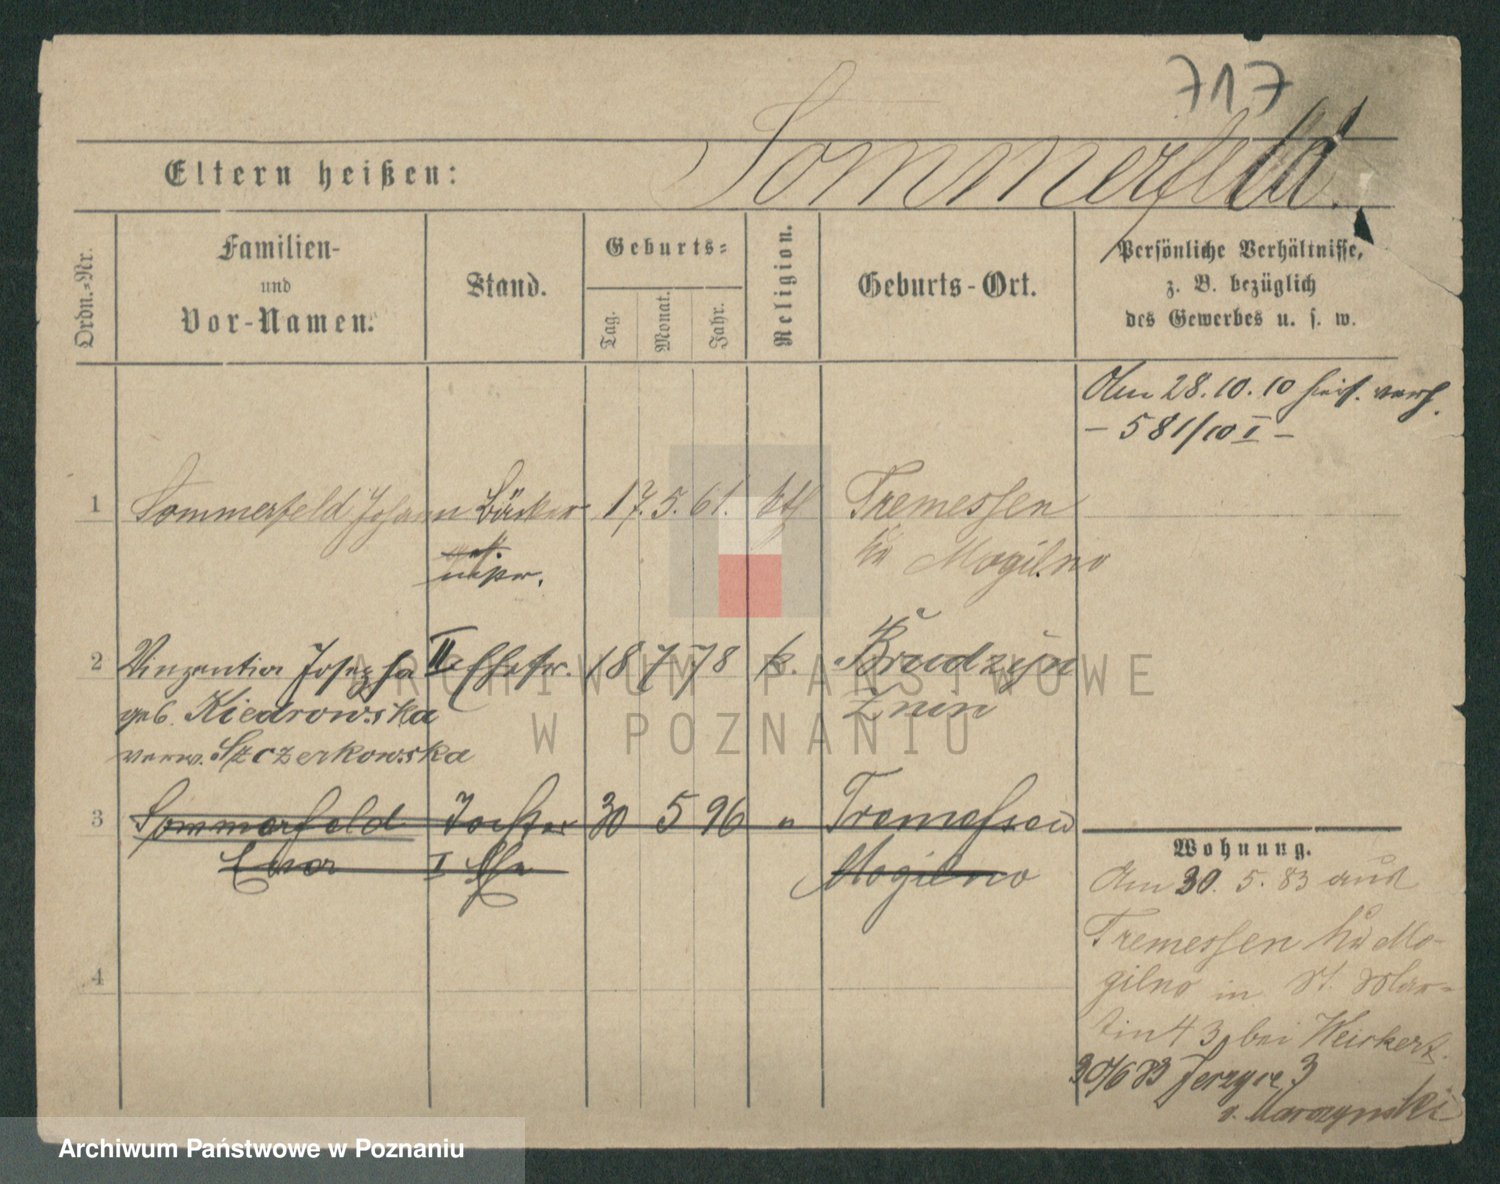 717
Sommerfeld.
Eltern heißen:
Ordn.-Nr.
Familien-
und
Vor-Namen.
Stand.
Geburts-
Tag.
Monat.
Jahr.
Religion.
Geburts-Ort.
Persönliche Verhältnisse,
z. B. bezüglich
des Gewerbes u. s. w.
Am 28.10.10 hier verh.
- 581/10 I -
1 Sommerfeld Johann Bäcker 17. 5. 61. kth Tremessen
Kr Mogilno
2 Vinzentia Josepha II Ehefr. 18 7 78 k. Brudzyn
geb. Kiedrowska Znin
verw. Szczerkowska
3 Sommerfeld Tochter 30 5 96 " Tremessen
I Ehe Mogilno
4
Wohnung.
Am 30. 5. 83 aus
Tremessen Kr Mo-
gilno in St. Mar-
tin 43 bei Weickert.
30/6 83 Jerzyce 3
ARCHIWUM PAŃSTWOWE
W POZNANIU
Archiwum Państwowe w Poznaniu